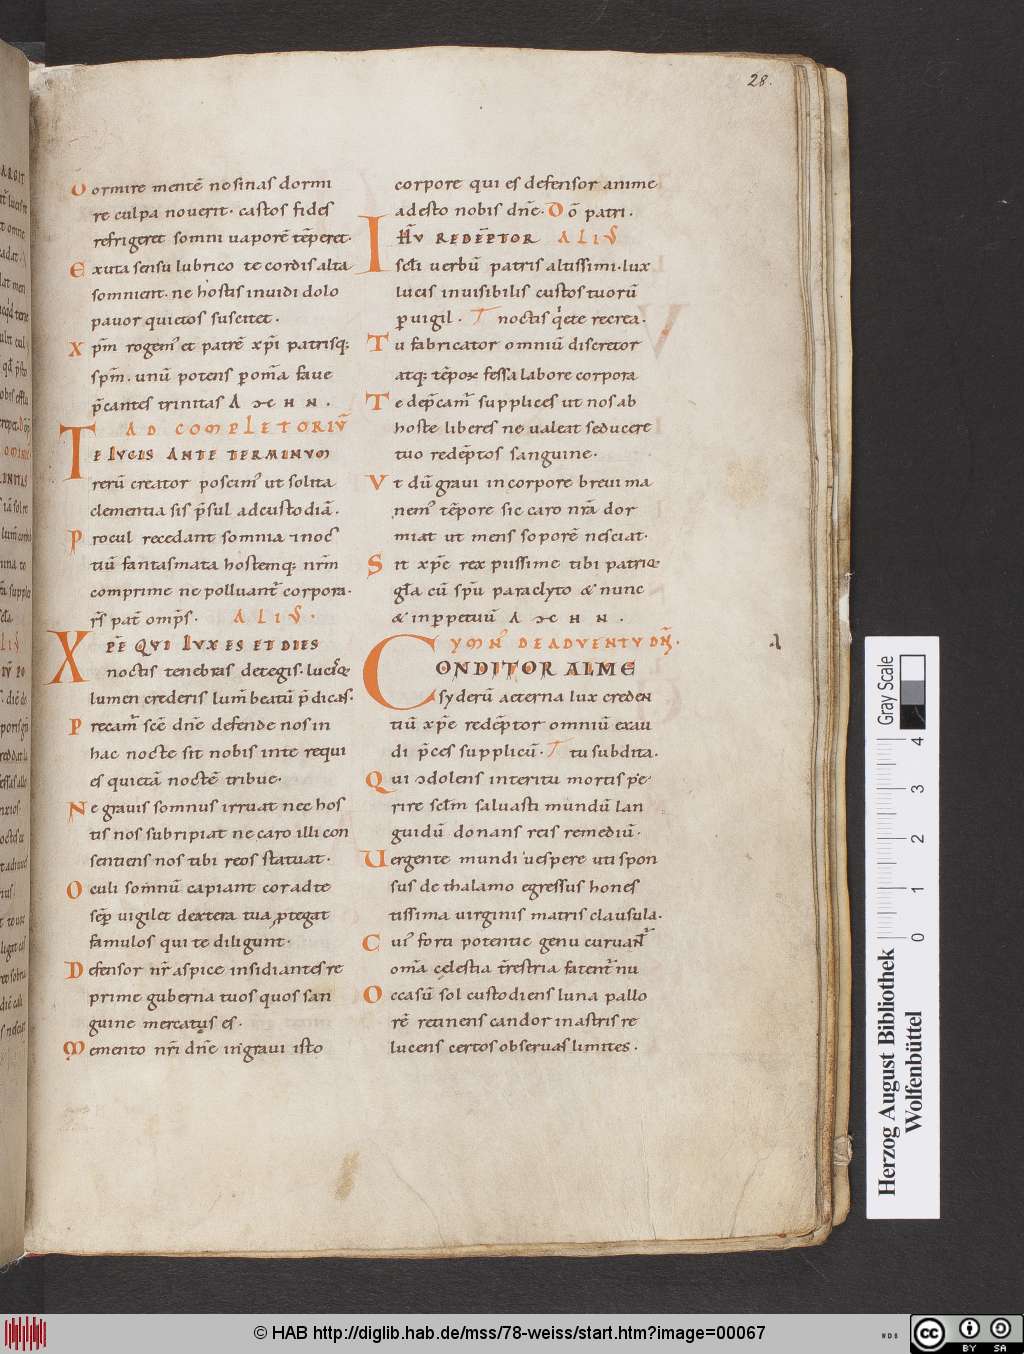 28.
Dormire mentē ne sinas dormi
re culpa noverit· castos fides
refrigeret somni vaporē tēperet·
Exuta sensu lubrico te cordis alta
somnient· ne hostis invidi dolo
pavor quietos suscitet·
Xp̄m rogem' et patrē xp̄i patrisq;
sp̄m· unū potens p om̄a fave
p̄cantes trinitas AMEN.
AD COMPLETORIŪ
TE LUCIS ANTE TERMINUM
rerū creator poscim' ut solita
clementia sis p̄sul ad custodiā·
Procul recedant somnia & noc̄
tiū fantasmata hostemq; nr̄m
comprime ne polluant̄ corpora·
p̄s̄ pat̄ omp̄s· ALIUS·
XPĒ QUI LUX ES ET DIES
noctis tenebras detegis· lucisq;
lumen crederis lum̄ beatū p̄dicas·
Precam̄ sc̄e dn̄e defende nos in
hac nocte sit nobis in te requi
es quietā noctē tribue·
Ne gravis somnus irruat nec hos
tis nos subripiat ne caro illi con
sentiens nos tibi reos statuat·
Oculi somnū capiant cor ad te
semp̄ vigilet dextera tua ptegat
famulos qui te diligunt·
Defensor nr̄ aspice insidiantes re
prime guberna tuos quos san
guine mercatus es·
Memento nr̄i dn̄e in gravi isto
corpore qui es defensor anime
adesto nobis dn̄e· Dō patri.
IHU REDĒPTOR ALIUS
sc̄li verbū patris altissimi· lux
lucis invisibilis custos tuorū
pvigil· T noctis q̇ete recrea·
Tu fabricator omniū discretor
atq; tēpoꝝ fessa labore corpora
Te dep̄cam̄ supplices ut nos ab
hoste liberes ne valeat seducere
tuo redēptos sanguine·
Ut dū gravi in corpore brevi ma
nem' tēpore sic caro nr̄a dor
miat ut mens soporē nesciat·
Sit xp̄e rex piissime tibi patriq;
gl̄a cū sp̄u paraclyto & nunc
& in ppetuū AMEN.
YMN' DE ADVENTU DN̄I·
CONDITOR ALME
syderū aeterna lux creden
tiū xp̄e redēptor omniū exau
di p̄ces supplicū· T tu subdita·
Qui ɔdolens interitu mortis pe
rire sc̄lm salvasti mundū lan
guidū donans reis remediū·
Vergente mundi vespere uti spon
sus de thalamo egressus hones
tissima virginis matris clausula·
Cui' forti potentie genu curvant̄
om̄a celestia tr̄restria fatent̄ nu
Occasū sol custodiens luna pallo
rē retinens candor in astris re
lucens certos observas limites·
Gray Scale
0 1 2 3 4
Herzog August Bibliothek
Wolfenbüttel
© HAB http://diglib.hab.de/mss/78-weiss/start.htm?image=00067
cc BY SA